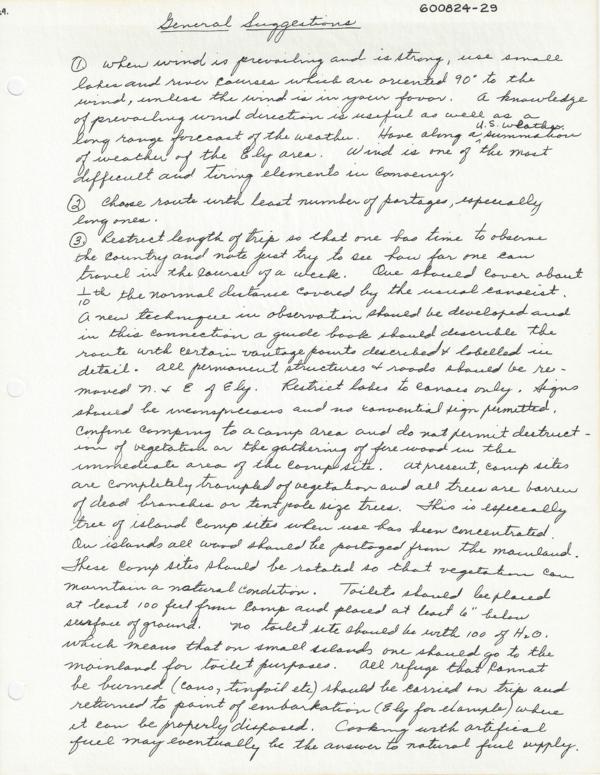 29.
600824-29
General Suggestions
① When wind is prevailing and is strong, use small
lakes and river courses which are oriented 90° to the
wind, unless the wind is in your favor. A knowledge
of prevailing wind direction is useful as well as a
long range forecast of the weather. Have along a U.S. weather summation
of weather of the Ely area. Wind is one of the most
difficult and tiring elements in canoeing.
② Choose route with least number of portages, especially
long ones.
③ Restrict length of trip so that one has time to observe
the country and not just try to see how far one can
travel in the course of a week. One should cover about
1/10 th the normal distance covered by the usual canoeist.
A new technique in observation should be developed and
in this connection a guide book should describe the
route with certain vantage points described & labelled in
detail. All permanent structures & roads should be re-
moved N. & E of Ely. Restrict lakes to canoes only. Signs
should be inconspicuous and no convential sign permitted.
Confine camping to a camp area and do not permit destruct-
ion of vegetation or the gathering of fire wood in the
immediate area of the camp site. At present, camp sites
are completely trampled of vegetation and all trees are barren
of dead branches or tent pole size trees. This is especially
true of island camp sites when use has been concentrated.
On islands all wood should be portaged from the mainland.
These camp sites should be rotated so that vegetation can
maintain a natural condition. Toilets should be placed
at least 100 feet from camp and placed at least 6" below
surface of ground. No toilet site should be with 100 of H₂O.
which means that on small islands one should go to the
mainland for toilet purposes. All refuge that cannot
be burned (cans, tinfoil etc) should be carried on trip and
returned to point of embarkation (Ely for example) where
it can be properly disposed. Cooking with artifical
fuel may eventually be the answer to natural fuel supply.